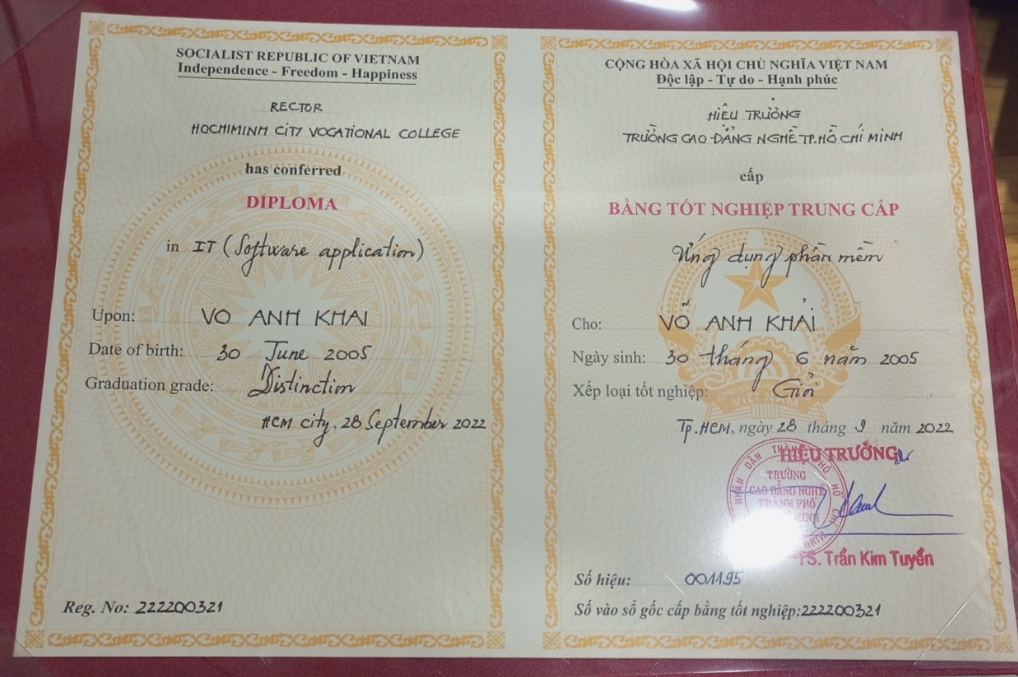 SOCIALIST REPUBLIC OF VIETNAM
Independence - Freedom - Happiness
RECTOR
HOCHIMINH CITY VOCATIONAL COLLEGE
has conferred
DIPLOMA
in IT (Software application)
Upon: VO ANH KHAI
Date of birth: 30 June 2005
Graduation grade: Distinction
HCM city, 28 September 2022
Reg. No: 222200321
CỘNG HÒA XÃ HỘI CHỦ NGHĨA VIỆT NAM
Độc lập - Tự do - Hạnh phúc
HIỆU TRƯỞNG
TRƯỜNG CAO ĐẲNG NGHỀ TP.HỒ CHÍ MINH
cấp
BẰNG TỐT NGHIỆP TRUNG CẤP
Ứng dụng phần mềm
Cho: VÕ ANH KHẢI
Ngày sinh: 30 tháng 6 năm 2005
Xếp loại tốt nghiệp: Giỏi
Tp.HCM, ngày 28 tháng 9 năm 2022
HIỆU TRƯỞNG
TRƯỜNG
CAO ĐẲNG NGHỀ
THÀNH PHỐ
TS. Trần Kim Tuyền
Số hiệu: 001195
Số vào sổ gốc cấp bằng tốt nghiệp:222200321